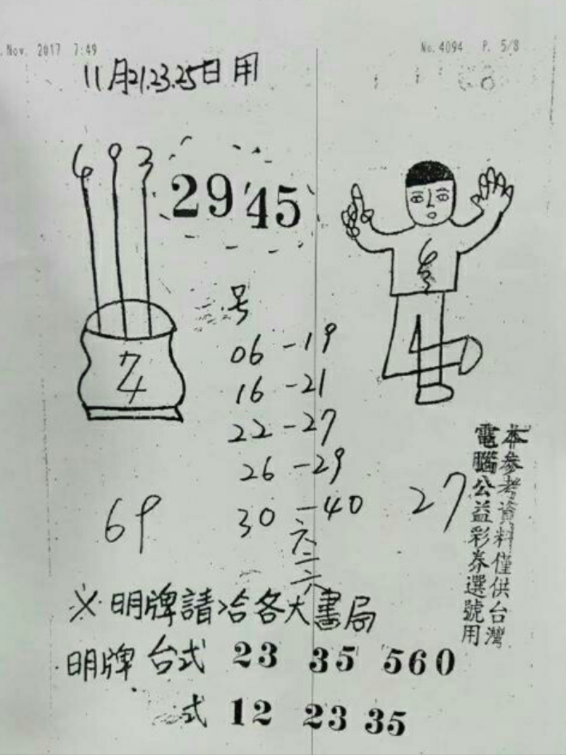 Nov. 2017 7:49
No. 4094 P. 5/8
11月21.23.25日用
6 9 3
29 45
号
06-19
16-21
22-27
26-29
30-40
六二六
74
69
27
本參考資料僅供台灣
電腦公益彩券選號用
※明牌請洽各大書局
明牌 台式 23 35 560
式 12 23 35